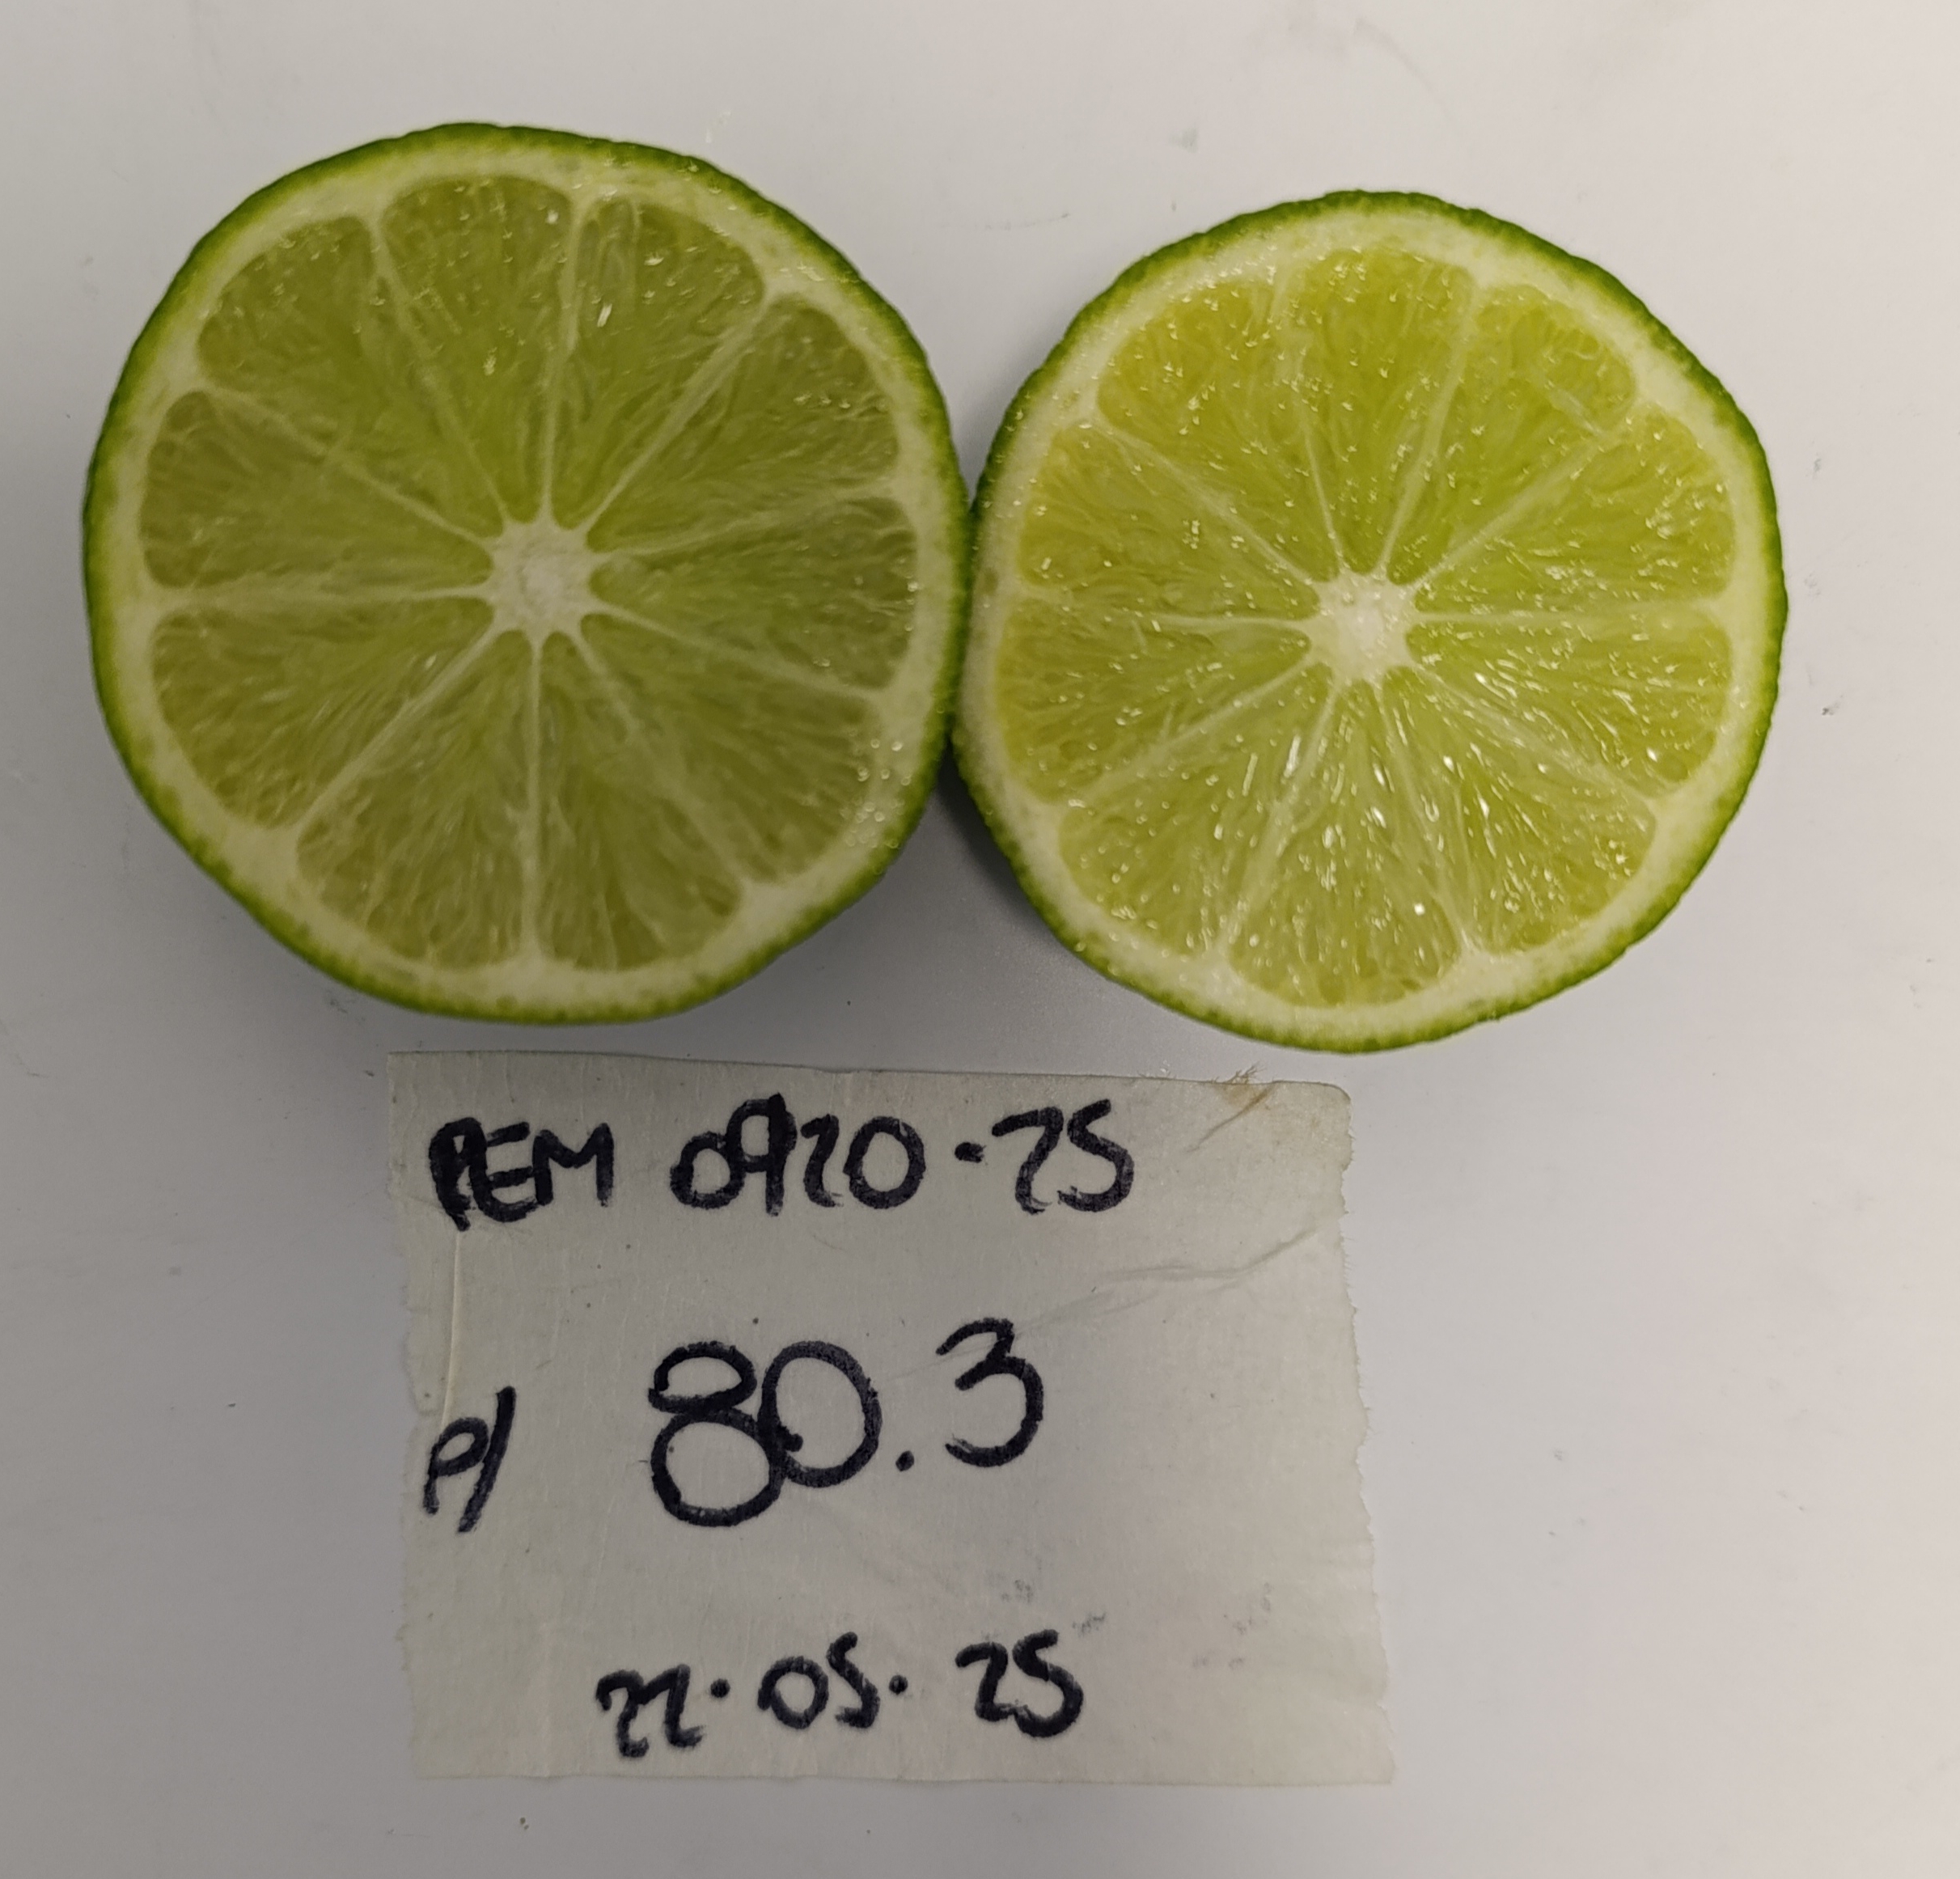 PEM 0920-25
P/ 80.3
22.05.25